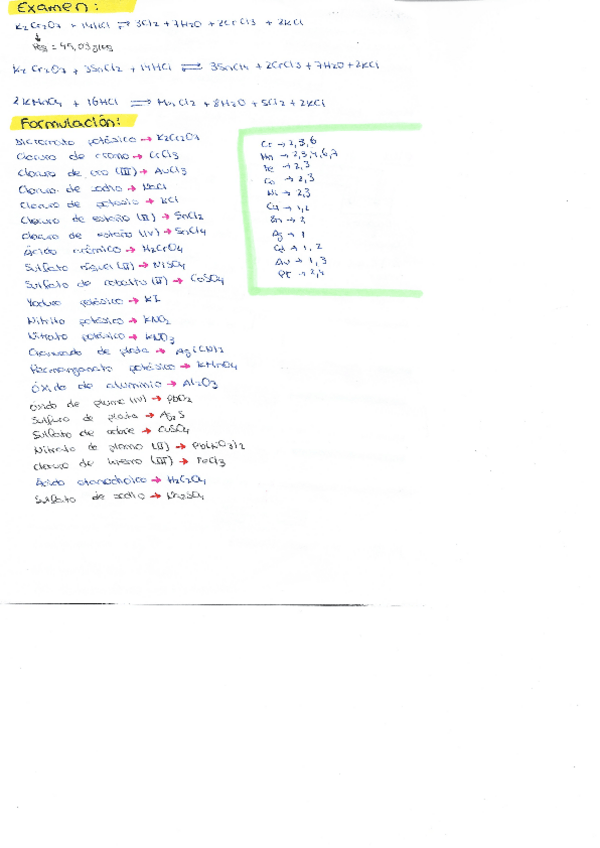 Examen:
K2Cr2O7 + 14HCl ⇌ 3Cl2 + 7H2O + 2CrCl3 + 2KCl
↓
Peq = 49,03 g/eq
K2Cr2O7 + 3SnCl2 + 14HCl ⇌ 3SnCl4 + 2CrCl3 + 7H2O + 2KCl
2KMnO4 + 16HCl ⇌ MnCl2 + 8H2O + 5Cl2 + 2KCl
Formulación:
Dicromato potásico → K2Cr2O7
Cloruro de cromo → CrCl3
Cloruro de oro (III) → AuCl3
Cloruro de sodio → NaCl
Cloruro de potasio → KCl
Cloruro de estaño (II) → SnCl2
Cloruro de estaño (IV) → SnCl4
Ácido crómico → H2CrO4
Sulfato níquel (II) → NiSO4
Sulfato de cobalto (II) → CoSO4
Yoduro potásico → KI
Nitrito potásico → KNO2
Nitrato potásico → KNO3
de plata → Ag(CN)2
Permanganato potásico → KMnO4
Óxido de aluminio → Al2O3
Óxido de plomo (IV) → PbO2
Sulfuro de plata → Ag2S
Sulfato de cobre → CuSO4
Nitrato de plomo (II) → Pb(NO3)2
Cloruro de hierro (III) → FeCl3
Ácido etanodioico → H2C2O4
Sulfato de sodio → Na2SO4
Cr → 2,3,6
Mn → 2,3,4,6,7
Fe → 2,3
Co → 2,3
Ni → 2,3
Cu → 1,2
Zn → 2
Ag → 1
Cd → 1,2
Au → 1,3
Pt → 2,4